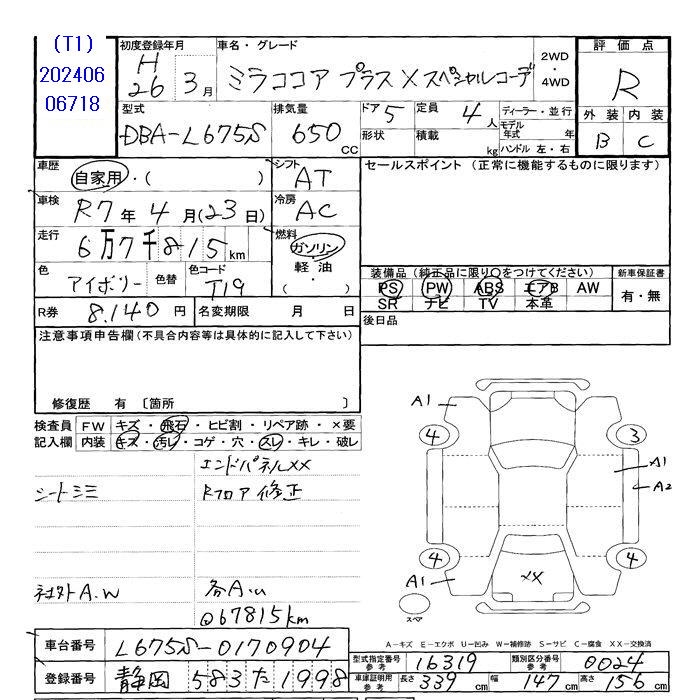 (T1)
202406
06718
初度登録年月
H
26 3月
車名・グレード
ミラココア プラス X スペシャルコーデ
2WD
・
4WD
評価点
R
外装 内装
B C
型式
DBA-L675S
排気量
650
CC
ドア 5
定員 4人
形状
積載 kg
ディーラー・並行
モデル
年式 年
ハンドル 左・右
車歴
自家用・( )
シフト
AT
セールスポイント (正常に機能するものに限ります)
車検
R7年 4月(23日)
冷房
AC
走行
6万7千815km
燃料
ガソリン
・
軽油
・
( )
色
アイボリー
色替
色コード
T19
装備品 (純正品に限り〇をつけてください)
PS PW ABS エアB AW
SR ナビ TV 本革
新車保証書
有・無
R券 8,140円
名変期限 月 日
後日品
注意事項申告欄(不具合内容等は具体的に記入して下さい)
修復歴 有 〔箇所 〕
検査員
記入欄
FW キズ・飛石・ヒビ割・リペア跡・×要
内装 キズ・汚レ・コゲ・穴・スレ・キレ・破レ
エンドパネルXX
シートミミ
Rフロア修正
社外A.W
各A.u
@67815km
A1
4
3
A1
A2
4
4
A1
XX
スペア
A-キズ E-エクボ U-凹み W-補修跡 S-サビ C-腐食 XX-交換済
車台番号 L675S-0170904
登録番号 静岡 583 た 1998
型式指定番号
参考
16319
類別区分番号
参考
0024
車庫証明用
参考
長さ 339cm 幅 147cm 高さ 156cm